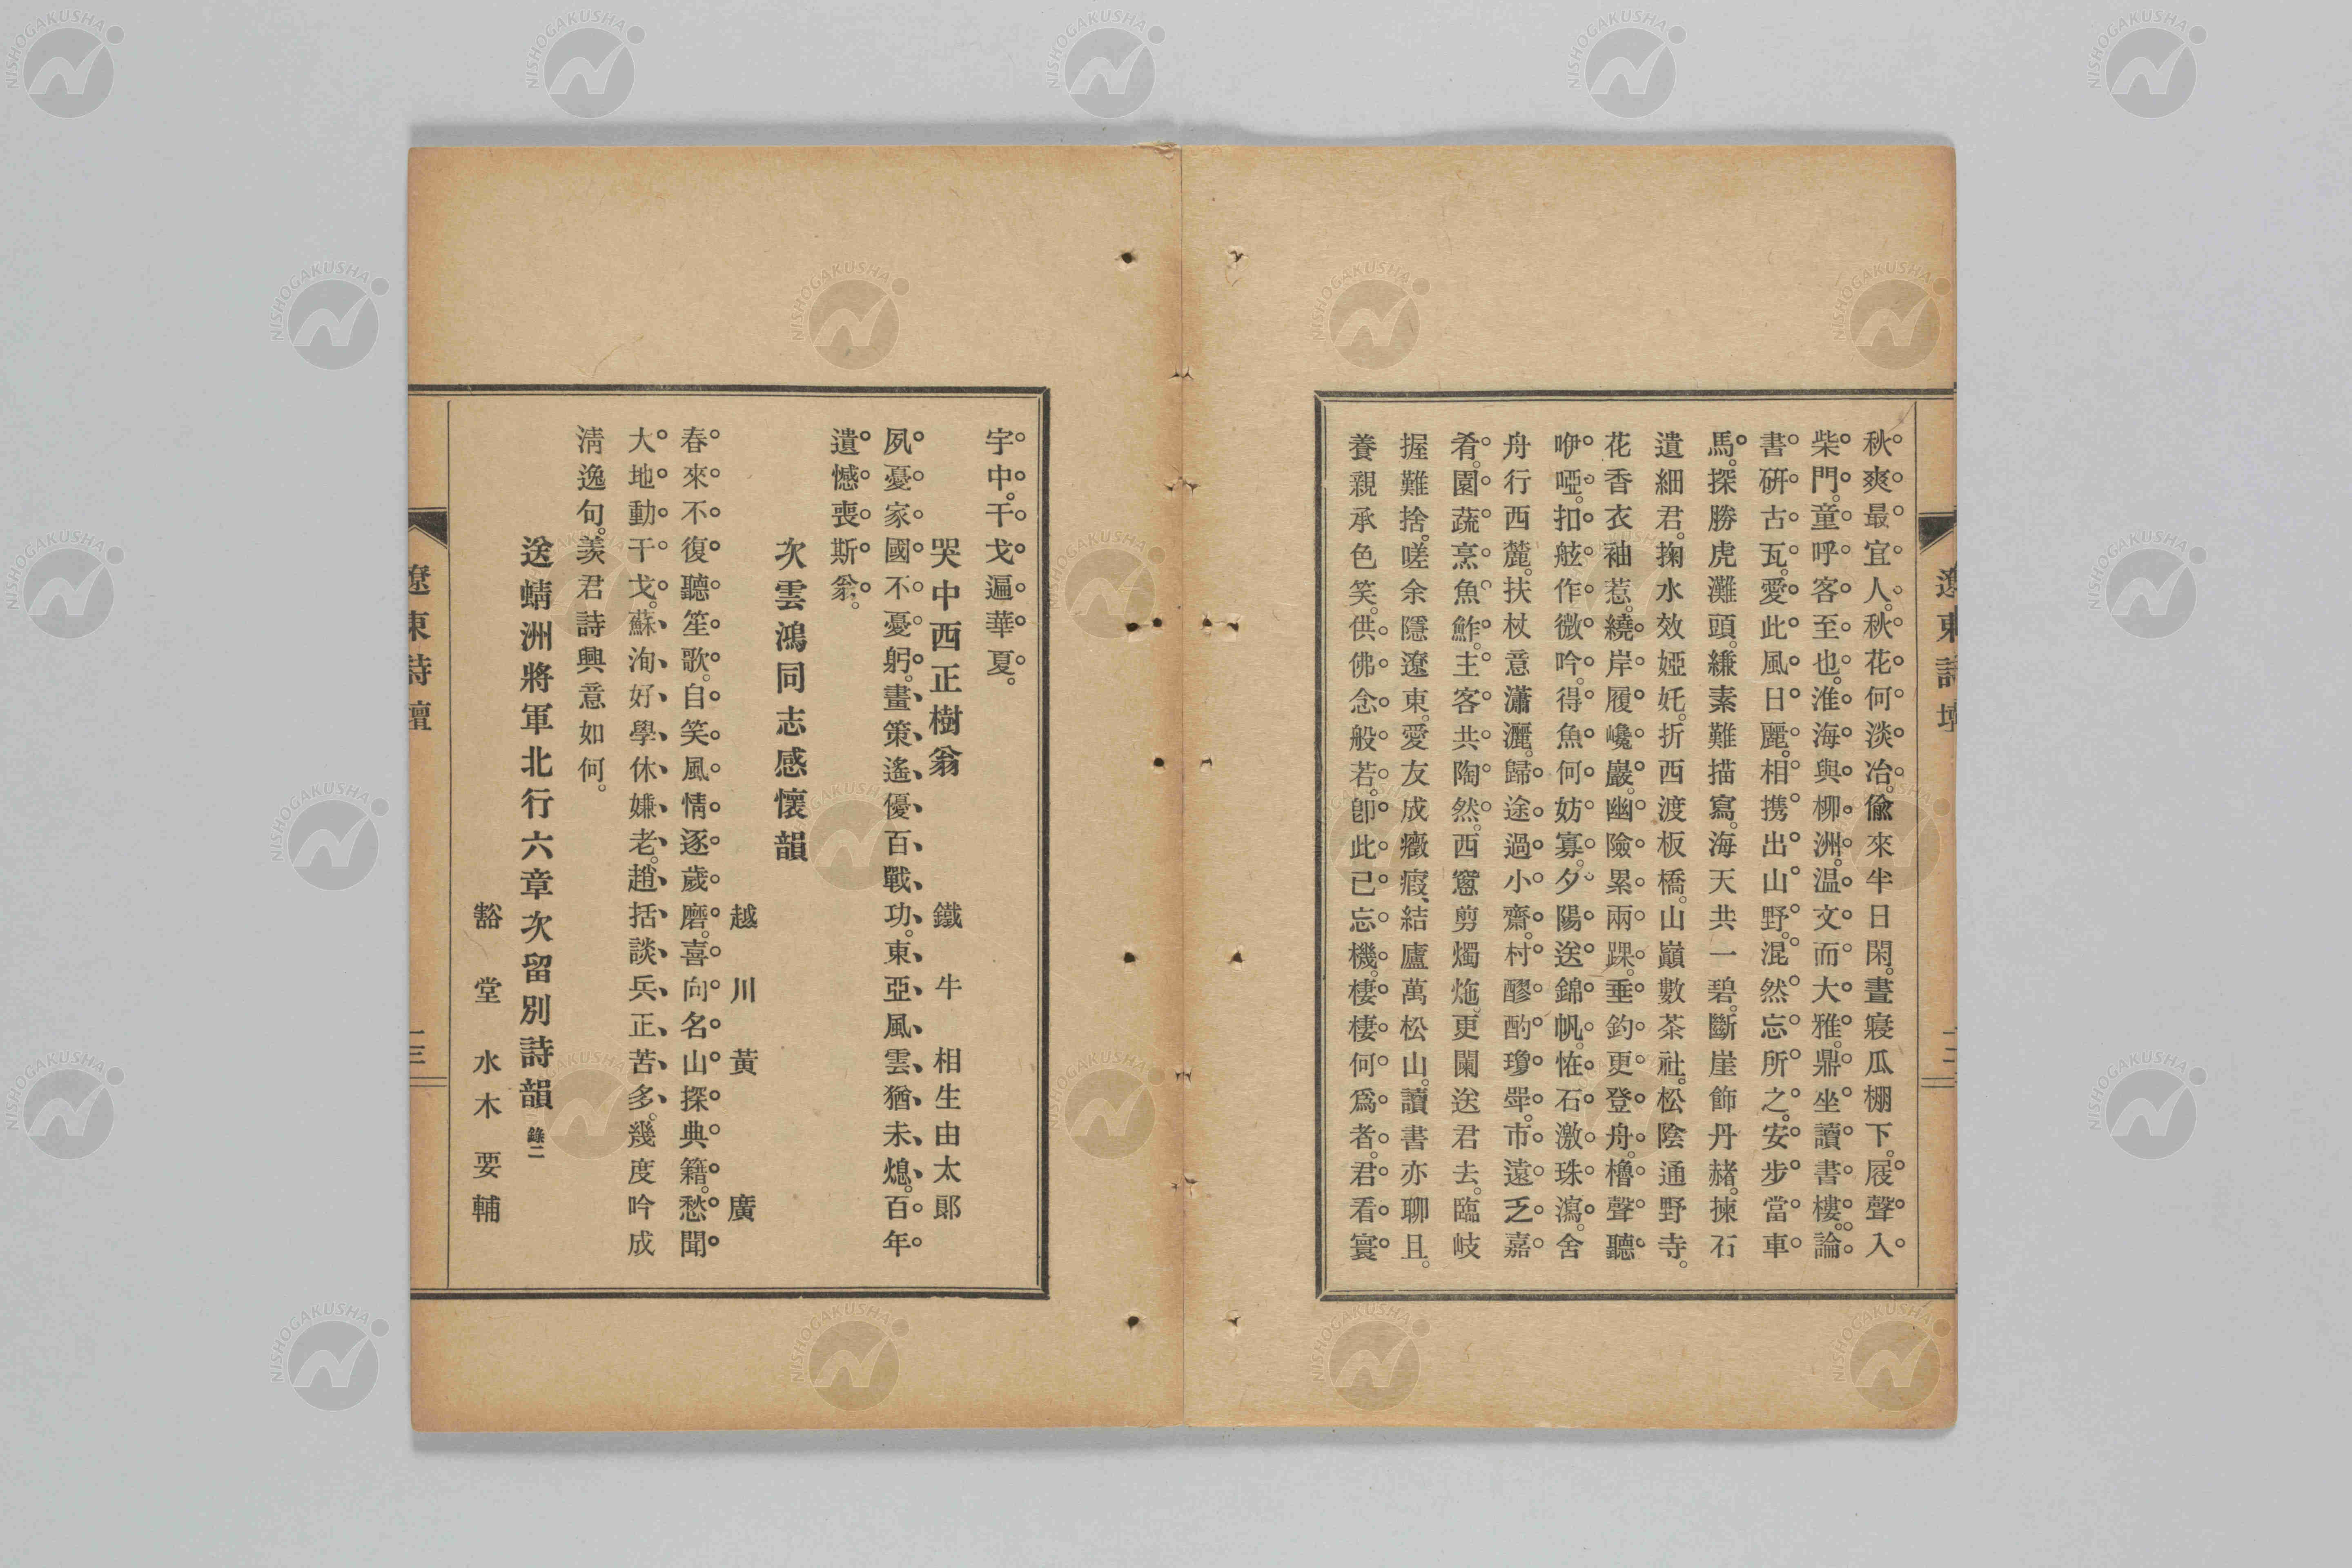 秋爽最宜人。秋花何淡冶。偸來半日閑。晝寢瓜棚下。屐聲入
柴門。童呼客至也。淮海與柳洲。温文而大雅。鼎坐讀書樓。論
書硏古瓦。愛此風日麗。相携出山野。混然忘所之。安步當車
馬。探勝虎灘頭。縑素難描寫。海天共一碧。斷崖飾丹赭。揀石
遺細君。掬水效婭奼。折西渡板橋。山巓數茶社。松陰通野寺。
花香衣袖惹。繞岸履巉巖。幽險累兩踝。垂釣更登舟。櫓聲聽
咿啞。扣舷作微吟。得魚何妨寡。夕陽送錦帆。恠石激珠瀉。舍
舟行西麓。扶杖意瀟灑。歸途過小齋。村醪酌瓊斝。市遠乏嘉
肴。園蔬烹魚鮓。主客共陶然。西窻剪燭灺。更闌送君去。臨岐
握難捨。嗟余隱遼東。愛友成癥瘕、結廬萬松山。讀書亦聊且。
養親承色笑。供佛念般若。卽此已忘機。棲棲何爲者。君看寰
遼東詩壇
宇中。干戈遍華夏。
哭中西正樹翁
鐵牛 相生由太郞
夙憂家國不憂躬。畫策遙優百戰功。東亞風雲猶未熄。百年
遺憾喪斯翁。
次雲鴻同志感懷韻
越川 黃廣
春來不復聽笙歌。自笑風情逐歲磨。喜向名山探典籍。愁聞
大地動干戈。蘇洵好學休嫌老。趙括談兵正苦多。幾度吟成
淸逸句。羨君詩興意如何。
送蜻洲將軍北行六章次留別詩韻 錄二
豁堂 水木要輔
遼東詩壇
NISHOGAKUSHA